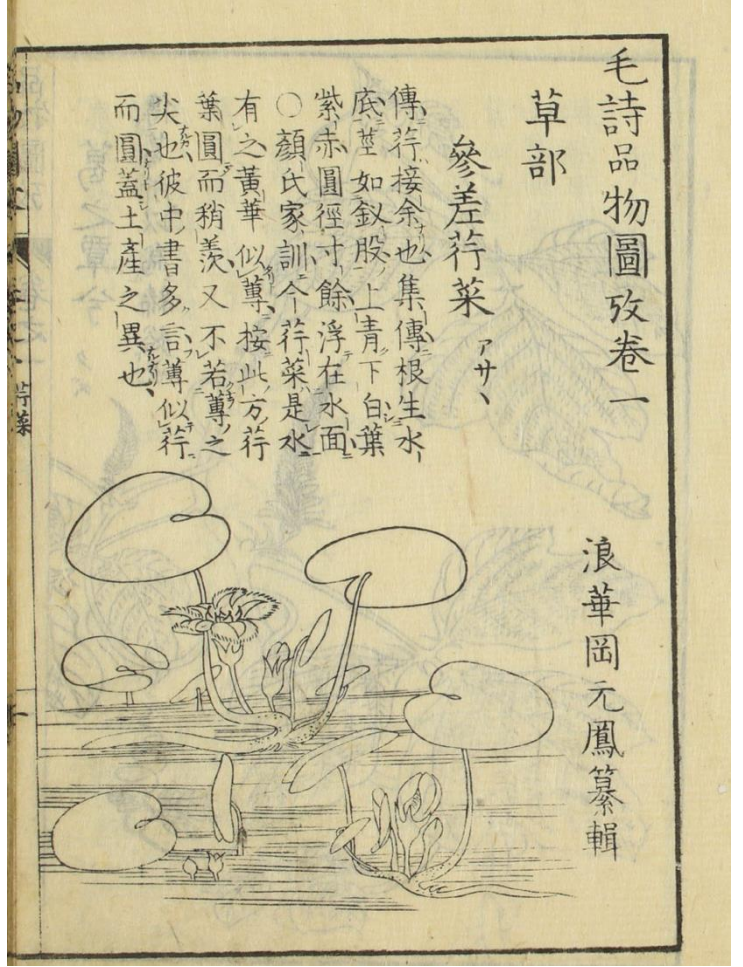 毛詩品物圖攷卷一
浪華岡元鳳纂輯
草部
參差荇菜 アサヽ
傳荇接余也集傳根生水
底莖如釵股上青下白葉
紫赤圓徑寸餘浮在水面
○顏氏家訓今荇菜是水
有之黃華似蓴按此方荇
葉圓而稍羨又不若蓴之
尖也彼中書多言蓴似荇
而圓蓋土產之異也
荇菜